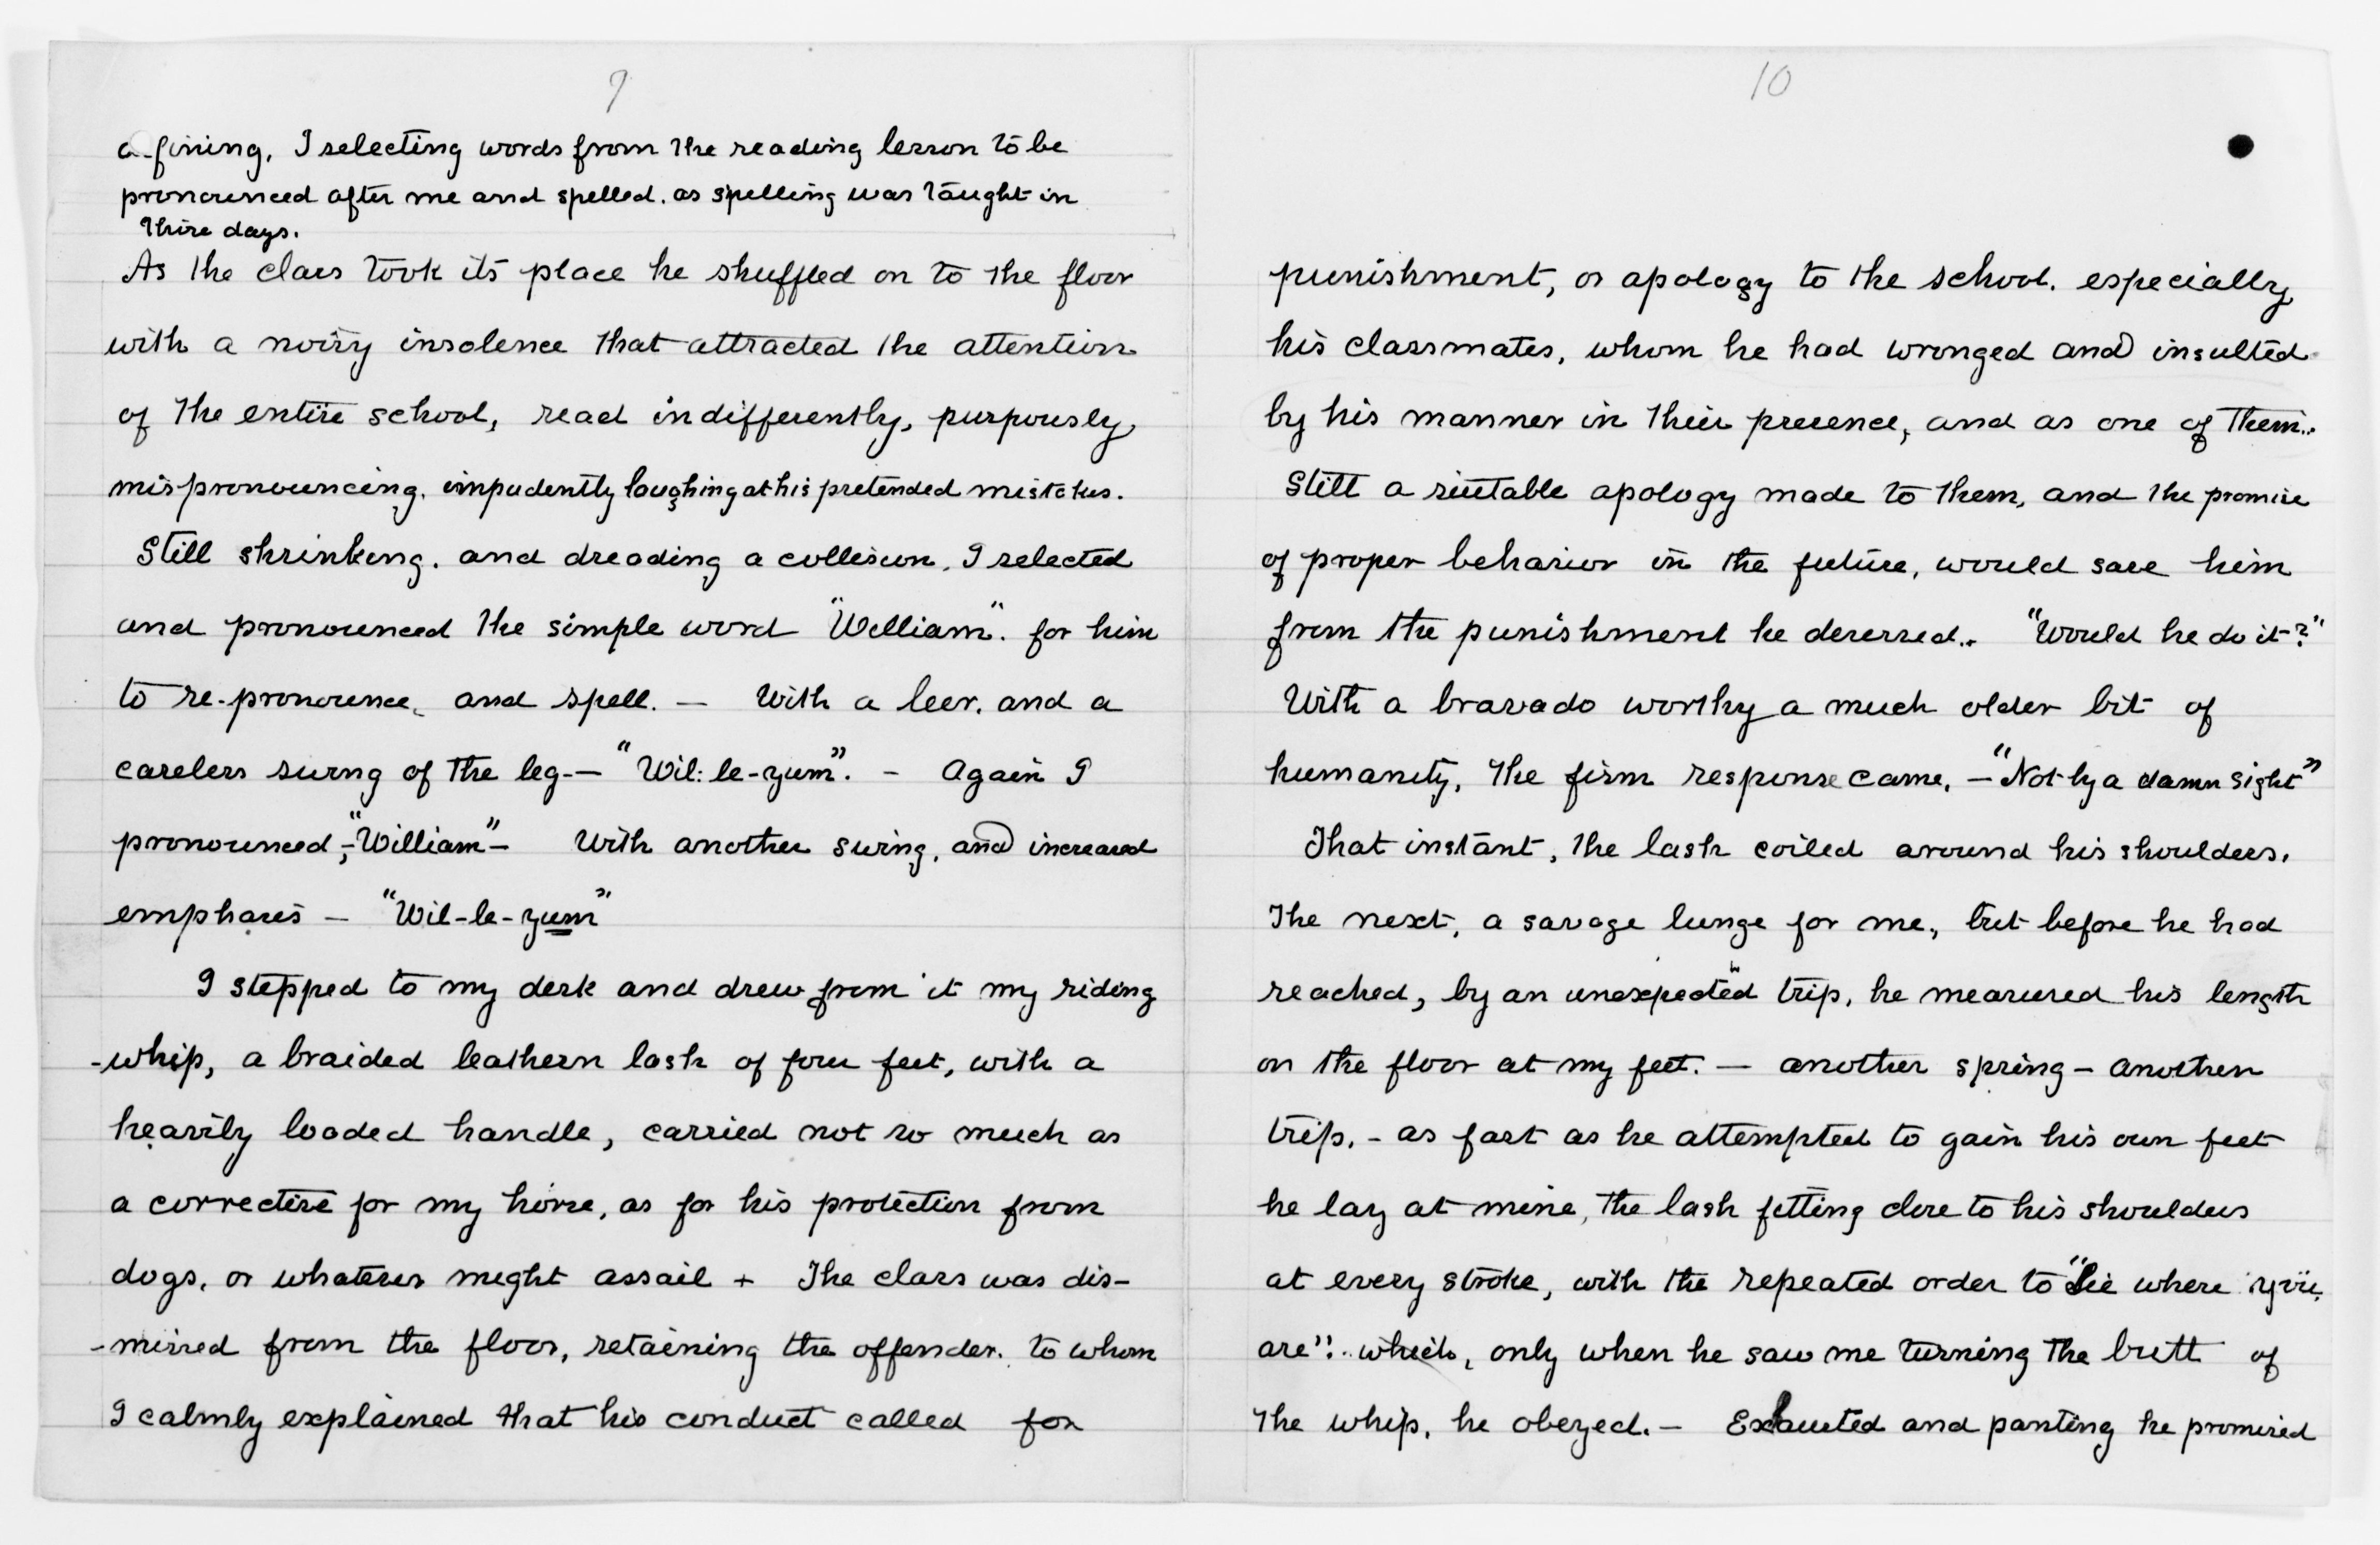 9
defining, I selecting words from the reading lesson to be
pronounced after me and spelled. as spelling was taught in
those days.
As the class took its place he shuffled on to the floor
with a noisy insolence that attracted the attention
of the entire school, read indifferently, purpously
mispronouncing, impudently laughing at his pretended mistakes.
Still shrinking. and dreading a collision, I selected
and pronounced the simple word "William". for him
to re-pronounce, and spell. — With a leer, and a
careless swing of the leg-— "Wil: le-yum". - Again I
pronounced,- "William"- With another swing, and increased
emphasis — "Wil-le-yum"
I stepped to my desk and drew from it my riding
-whip, a braided leathern lash of four feet, with a
heavily loaded handle, carried not so much as
a corrective for my horse, as for his protection from
dogs, or whatever might assail + The class was dis-
-missed from the floor, retaining the offender. to whom
I calmly explained that his conduct called for
10
punishment, or apology to the school. especially
his classmates, whom he had wronged and insulted
by his manner in their presence, and as one of them..
Still a suitable apology made to them, and the promise
of proper behavior in the future, would save him
from the punishment he deserved.. "Would he do it?"
With a bravado worthy a much older bit of
humanity, the firm response came, — "Not by a damn sight"
That instant, the lash coiled around his shoulders.
The next, a savage lunge for me, but before he had
reached, by an unexpected trip, he measured his length
on the floor at my feet. — another spring — another
trip. - as fast as he attempted to gain his own feet
he lay at mine, the lash fitting close to his shoulders
at every stroke, with the repeated order to "Lie where you
are".. which, only when he saw me turning the butt of
the whip, he obeyed. — Exhausted and panting he promised